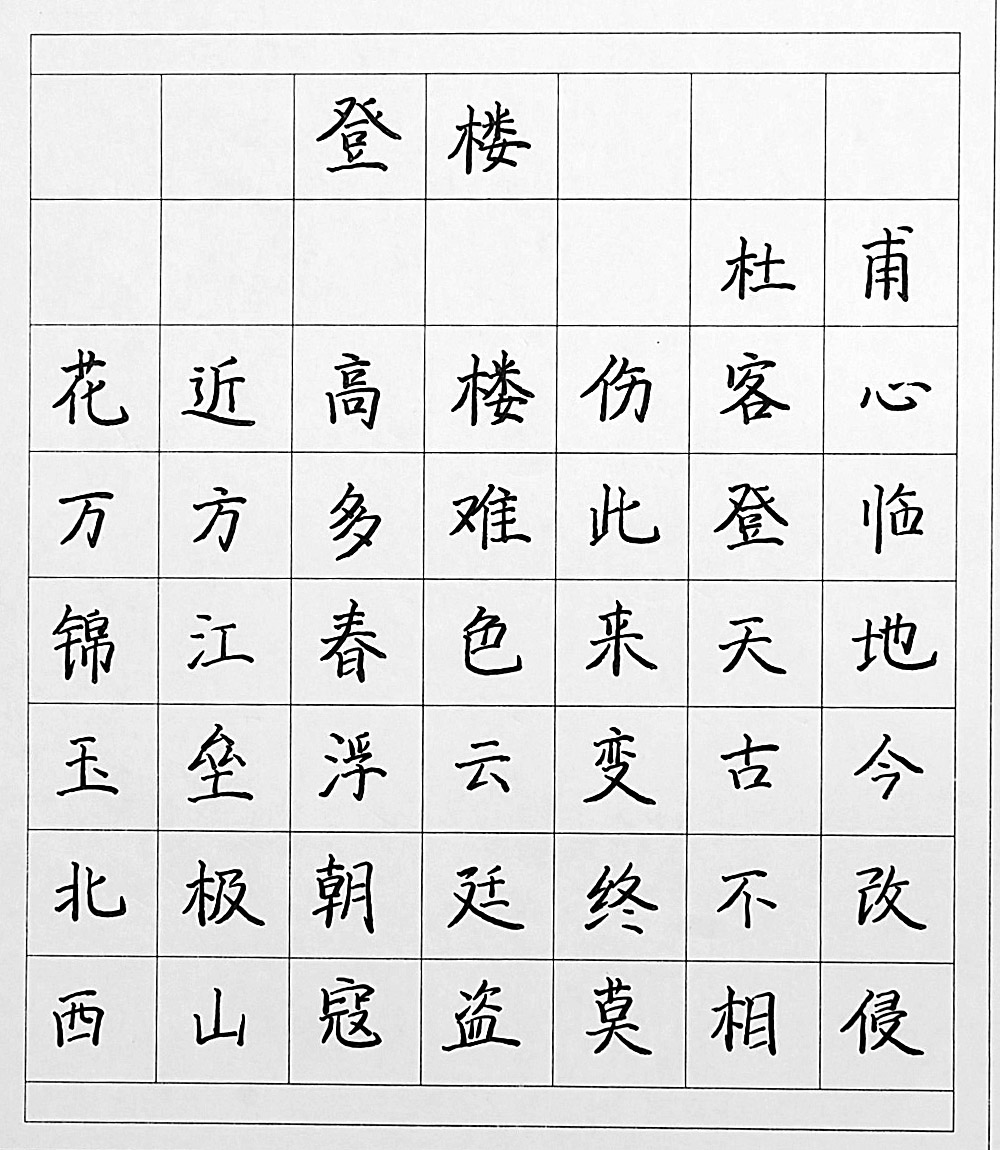 登楼
杜甫
花近高楼伤客心
万方多难此登临
锦江春色来天地
玉垒浮云变古今
北极朝廷终不改
西山寇盗莫相侵